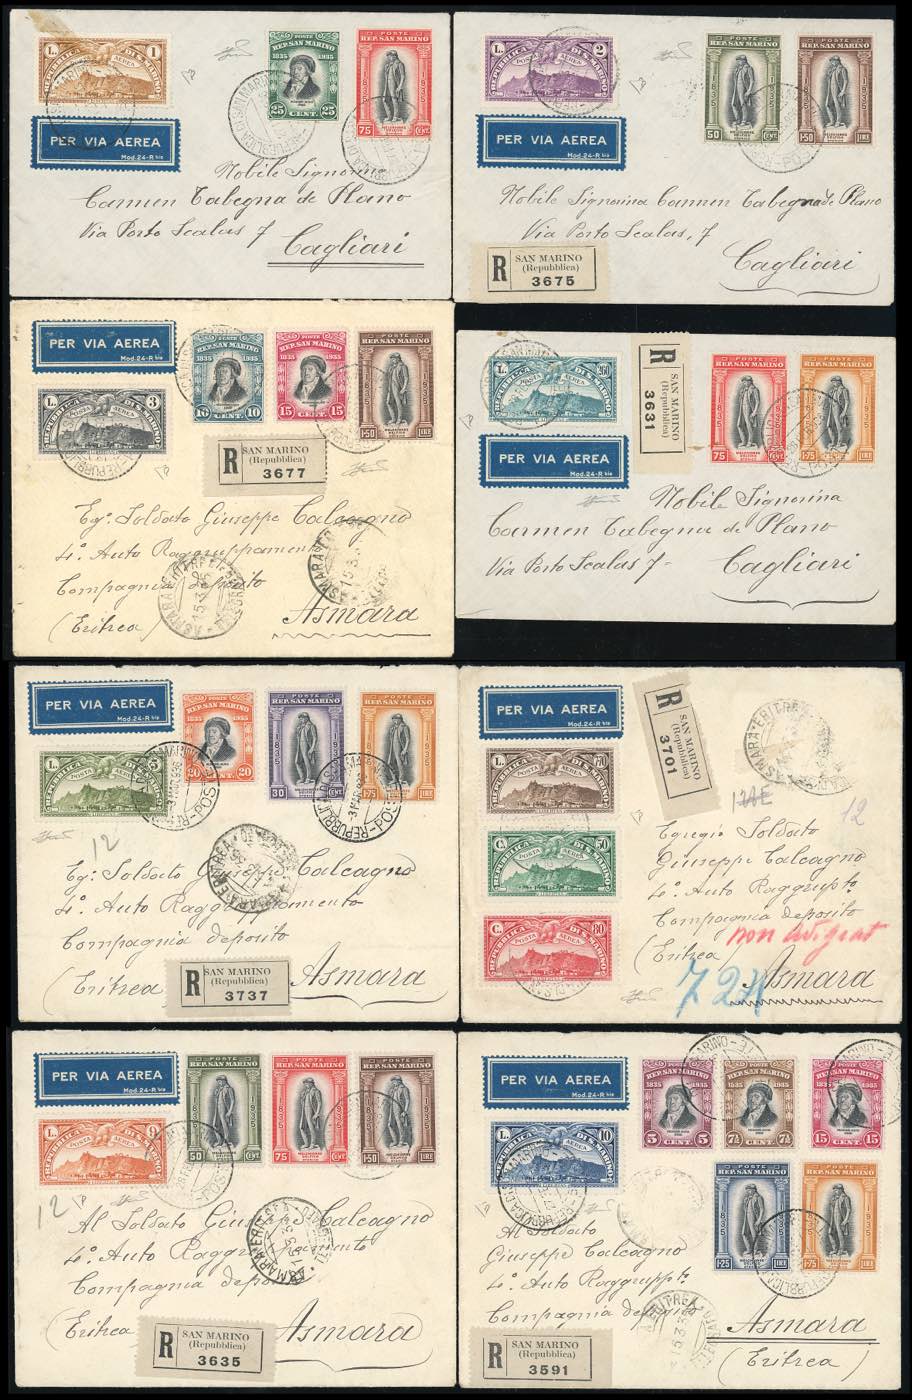 L. 1
REPUBBLICA DI S. MARINO
POSTA AEREA
POSTE
REP. SAN MARINO
1835 1935
25 CENT. 25
POSTE
REP. SAN MARINO
1835 1935
75 CENT.
PER VIA AEREA
Mod. 24-R bis
Nobile Signorina
Carmen Tabegna de Plano
Via Porto Scalas 7
Cagliari
L. 2
REPUBBLICA DI S. MARINO
POSTA AEREA
POSTE
REP. SAN MARINO
1835 1935
50 CENT.
POSTE
REP. SAN MARINO
1835 1935
1·50 LIRE
PER VIA AEREA
Mod. 24-R bis
Nobile Signorina Carmen Tabegna de Plano
Via Porto Scalas, 7
Cagliari
R SAN MARINO
(Repubblica)
3675
PER VIA AEREA
Mod. 24-R bis
L. 3
REPUBBLICA DI S. MARINO
POSTA AEREA
POSTE
REP. SAN MARINO
1835 1935
10 CENT. 10
POSTE
REP. SAN MARINO
1835 1935
15 CENT. 15
POSTE
REP. SAN MARINO
1835 1935
1·50 LIRE
R SAN MARINO
(Repubblica)
3677
Eg. Soldato Giuseppe Calcagno
4° Auto Raggruppamento
Compagnia deposito
(Eritrea)
Asmara
L. 2.60
REPUBBLICA DI S. MARINO
POSTA AEREA
R SAN MARINO
(Repubblica)
3631
POSTE
REP. SAN MARINO
1835 1935
75 CENT.
POSTE
REP. SAN MARINO
1835 1935
1·75 LIRE
PER VIA AEREA
Mod. 24-R bis
Nobile Signorina
Carmen Tabegna de Plano
Via Porto Scalas 7
Cagliari
PER VIA AEREA
Mod. 24-R bis
L. 5
REPUBBLICA DI S. MARINO
POSTA AEREA
POSTE
REP. SAN MARINO
1835 1935
20 CENT. 20
POSTE
REP. SAN MARINO
1835 1935
30 CENT.
POSTE
REP. SAN MARINO
1835 1935
1·75 LIRE
12
Eg. Soldato Giuseppe Calcagno
4° Auto Raggruppamento
Compagnia deposito
(Eritrea)
Asmara
R SAN MARINO
(Repubblica)
3737
PER VIA AEREA
Mod. 24-R bis
R SAN MARINO
(Repubblica)
3701
REPUBBLICA DI S. MARINO
POSTA AEREA
C. 50
REPUBBLICA DI S. MARINO
POSTA AEREA
C. 80
REPUBBLICA DI S. MARINO
POSTA AEREA
12
Egregio Soldato
Giuseppe Calcagno
4° Auto Raggrupto
Compagnia deposito
(Eritrea)
Asmara
PER VIA AEREA
Mod. 24-R bis
L. 9
REPUBBLICA DI S. MARINO
POSTA AEREA
POSTE
REP. SAN MARINO
1835 1935
50 CENT.
POSTE
REP. SAN MARINO
1835 1935
75 CENT.
POSTE
REP. SAN MARINO
1835 1935
1·50 LIRE
12
Al Soldato Giuseppe Calcagno
4° Auto Raggruppamento
Compagnia deposito
(Eritrea)
Asmara
R SAN MARINO
(Repubblica)
3635
PER VIA AEREA
Mod. 24-R bis
L. 10
REPUBBLICA DI S. MARINO
POSTA AEREA
POSTE
REP. SAN MARINO
1835 1935
5 CENT. 5
POSTE
REP. SAN MARINO
1835 1935
7½ CENT. 7½
POSTE
REP. SAN MARINO
1835 1935
15 CENT. 15
POSTE
REP. SAN MARINO
1835 1935
1·25 LIRE
POSTE
REP. SAN MARINO
1835 1935
1·75 LIRE
Al Soldato
Giuseppe Calcagno
4° Auto Raggrupto
Compagnia deposito
Asmara
(Eritrea)
R SAN MARINO
(Repubblica)
3591